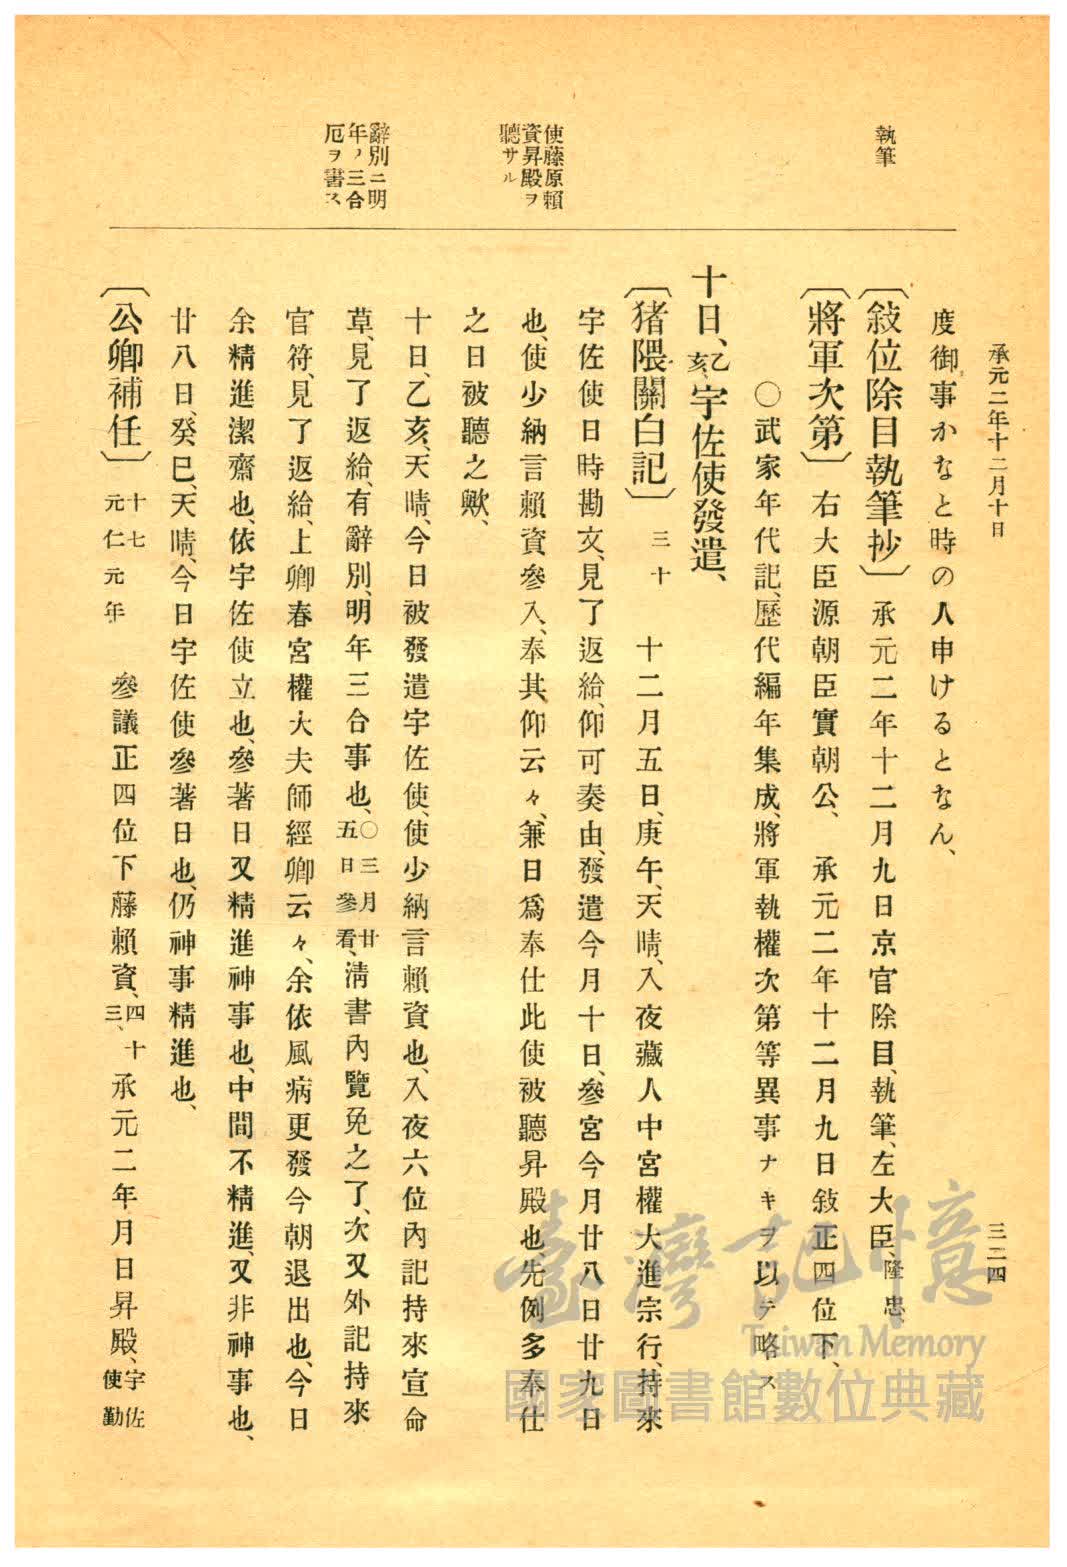 承元二年十二月十日
三二四
執筆
使藤原賴
資昇殿ヲ
聽サル
辭別ニ明
年ノ三合
厄ヲ書ス
度御事かなと時の人申けるとなん、
〔敍位除目執筆抄〕承元二年十二月九日京官除目、執筆、左大臣、隆忠、
〔將軍次第〕右大臣源朝臣實朝公、承元二年十二月九日敍正四位下、
〇武家年代記、歷代編年集成、將軍執權次第等異事ナキヲ以テ略ス
十日、乙亥、宇佐使發遣、
〔猪隈關白記〕三十 十二月五日、庚午、天晴、入夜藏人中宮權大進宗行、持來
宇佐使日時勘文、見了返給、仰可奏由、發遣今月十日、參宮今月廿八日廿九日
也、使少納言賴資參入、奉其仰云々、兼日爲奉仕此使被聽昇殿也、先例多奉仕
之日被聽之歟、
十日、乙亥、天晴、今日被發遣宇佐使、使少納言賴資也、入夜六位內記持來宣命
草、見了返給、有辭別、明年三合事也、〇三月廿五日參看、淸書內覽免之了、次又外記持來
官符、見了返給、上卿春宮權大夫師經卿云々、余依風病更發今朝退出也、今日
余精進潔齋也、依宇佐使立也、參著日又精進神事也、中間不精進、又非神事也、
廿八日、癸巳、天晴、今日宇佐使參著日也、仍神事精進也、
〔公卿補任〕十七元仁元年 參議正四位下藤賴資、四十三、承元二年月日昇殿、宇佐使勤
臺灣記憶
Taiwan Memory
國家圖書館數位典藏